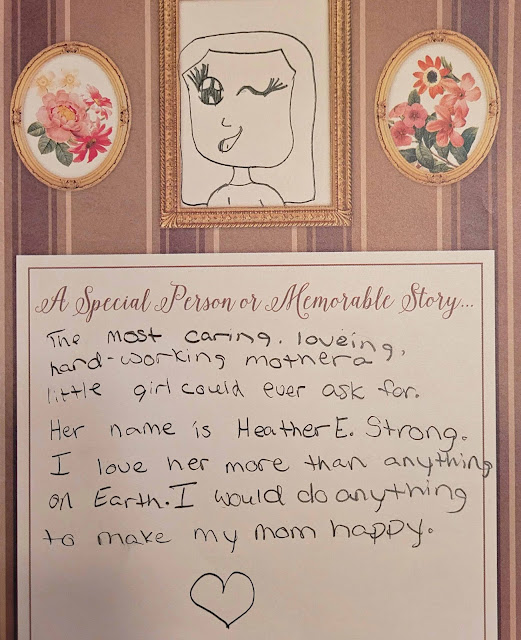 A Special Person or Memorable Story...
The most caring, loveing,
hard-working mother a
little girl could ever ask for.
Her name is Heather E. Strong.
I love her more than anything
on Earth. I would do anything
to make my mom happy.